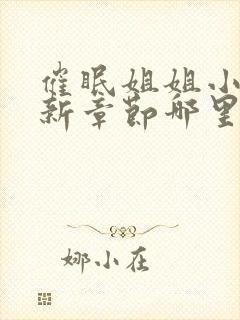 催眠姐姐小
新章节哪里
娜小在